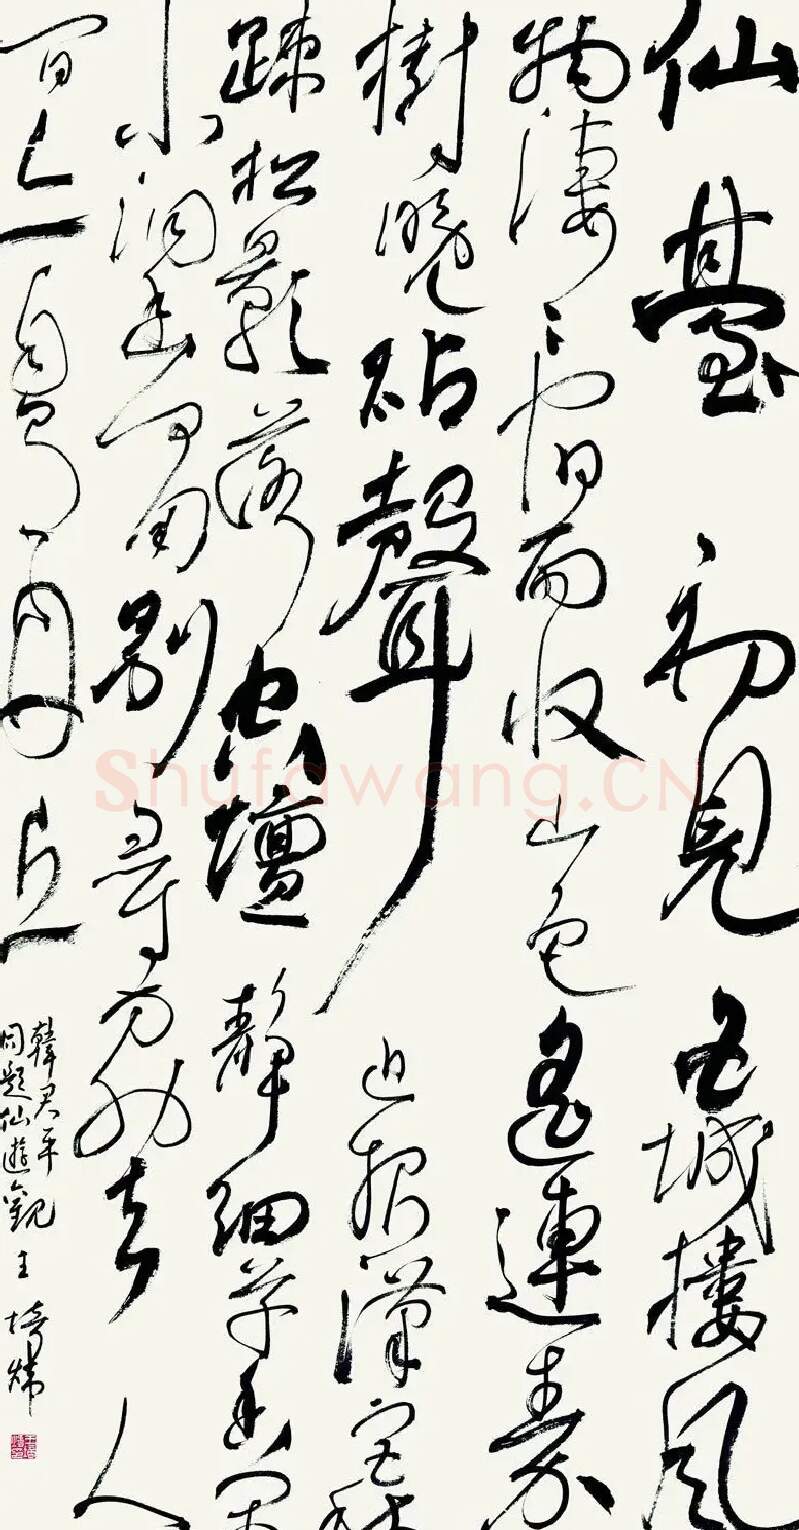 仙臺初見五城樓風
物淒々宿雨收山色遙連秦
樹晚砧聲近報漢宮秋
疎松影落空壇靜細草香閒
小洞幽何用別尋方外去人
間亦自有丹丘
韓君平
同題仙遊觀 王
Shufawang.CN